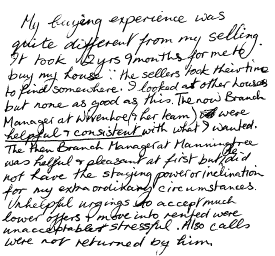 My buying experience was
quite different from my selling.
It took 2yrs 9months for me to
buy my house ∵ the sellers took their time
to find somewhere. I looked at other houses
but none as good as this. The now Branch
Manager at Wivenhoe (& her team) were
helpful & consistent with what I wanted.
The then Branch Manager at Manningtree
was helpful & pleasant at first but did
not have the staying power or inclination
for my extraordinary circumstances.
Unhelpful urgings to accept much
lower offers & move into rented were
unacceptable & stressful. Also calls
were not returned by him.